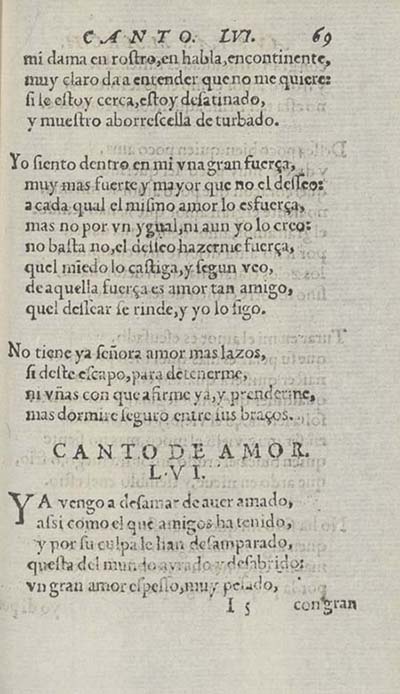 CANTO. LVI. 69
mi dama en rostro, en habla, encontinente,
muy claro da a entender que no me quiere:
si le estoy cerca, estoy desatinado,
y muestro aborrescella de turbado.
Yo siento dentro en mi vna gran fuerça,
muy mas fuerte y mayor que no el desseo:
a cada qual el mismo amor lo esfuerça,
mas no por vn ygual, ni aun yo lo creo:
no basta no, el desseo hazerme fuerça,
quel miedo lo castiga, y segun veo,
de aquella fuerça es amor tan amigo,
quel dessear se rinde, y yo lo sigo.
No tiene ya señora amor mas lazos,
si deste escapo, para detenerme,
ni vñas con que afirme ya, y prenderme,
mas dormire seguro entre sus braços.
CANTO DE AMOR.
LVI.
YA vengo a desamar de auer amado,
assi como el que amigos ha tenido,
y por su culpa le han desamparado,
questa del mundo ayrado y desabrido:
vn gran amor espesso, muy pesado,
I 5 con gran